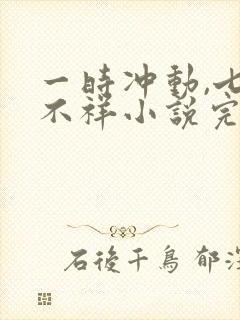 一時冲動,七
不祥小說完
石後千鳥 郁深